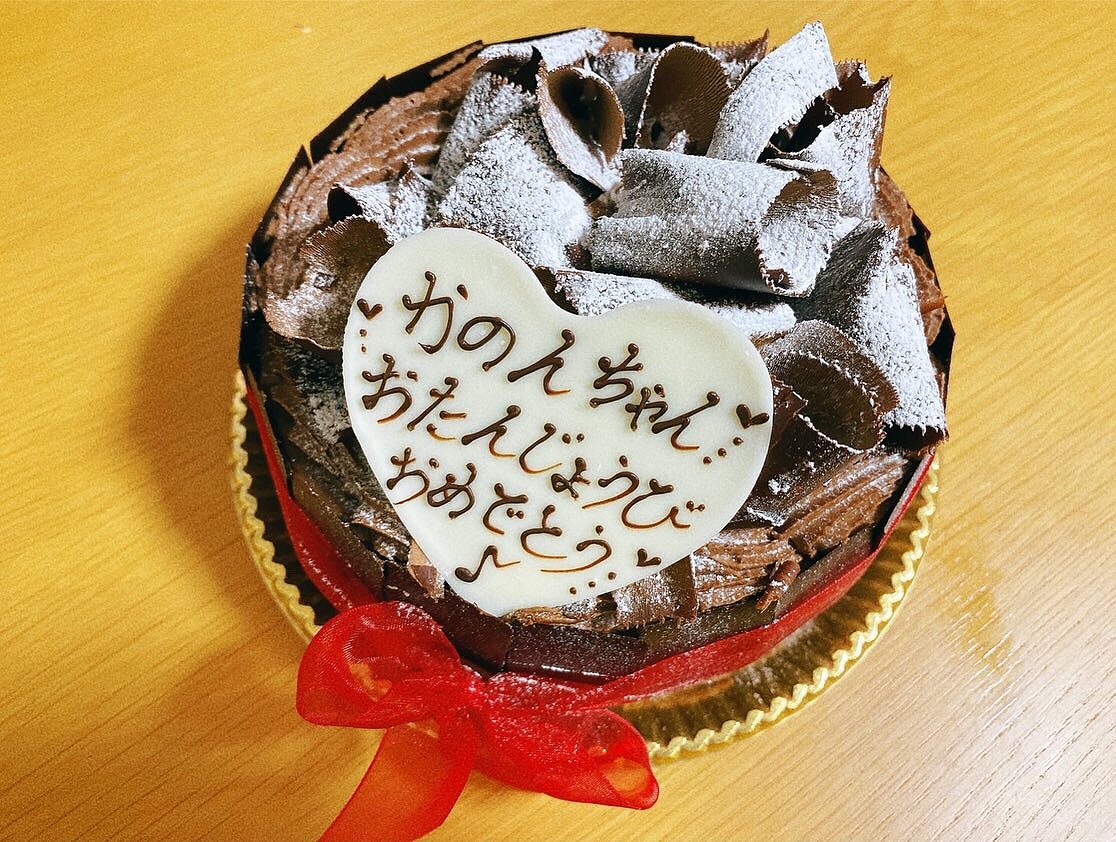 かのんちゃん
おたんじょうび
おめでとう